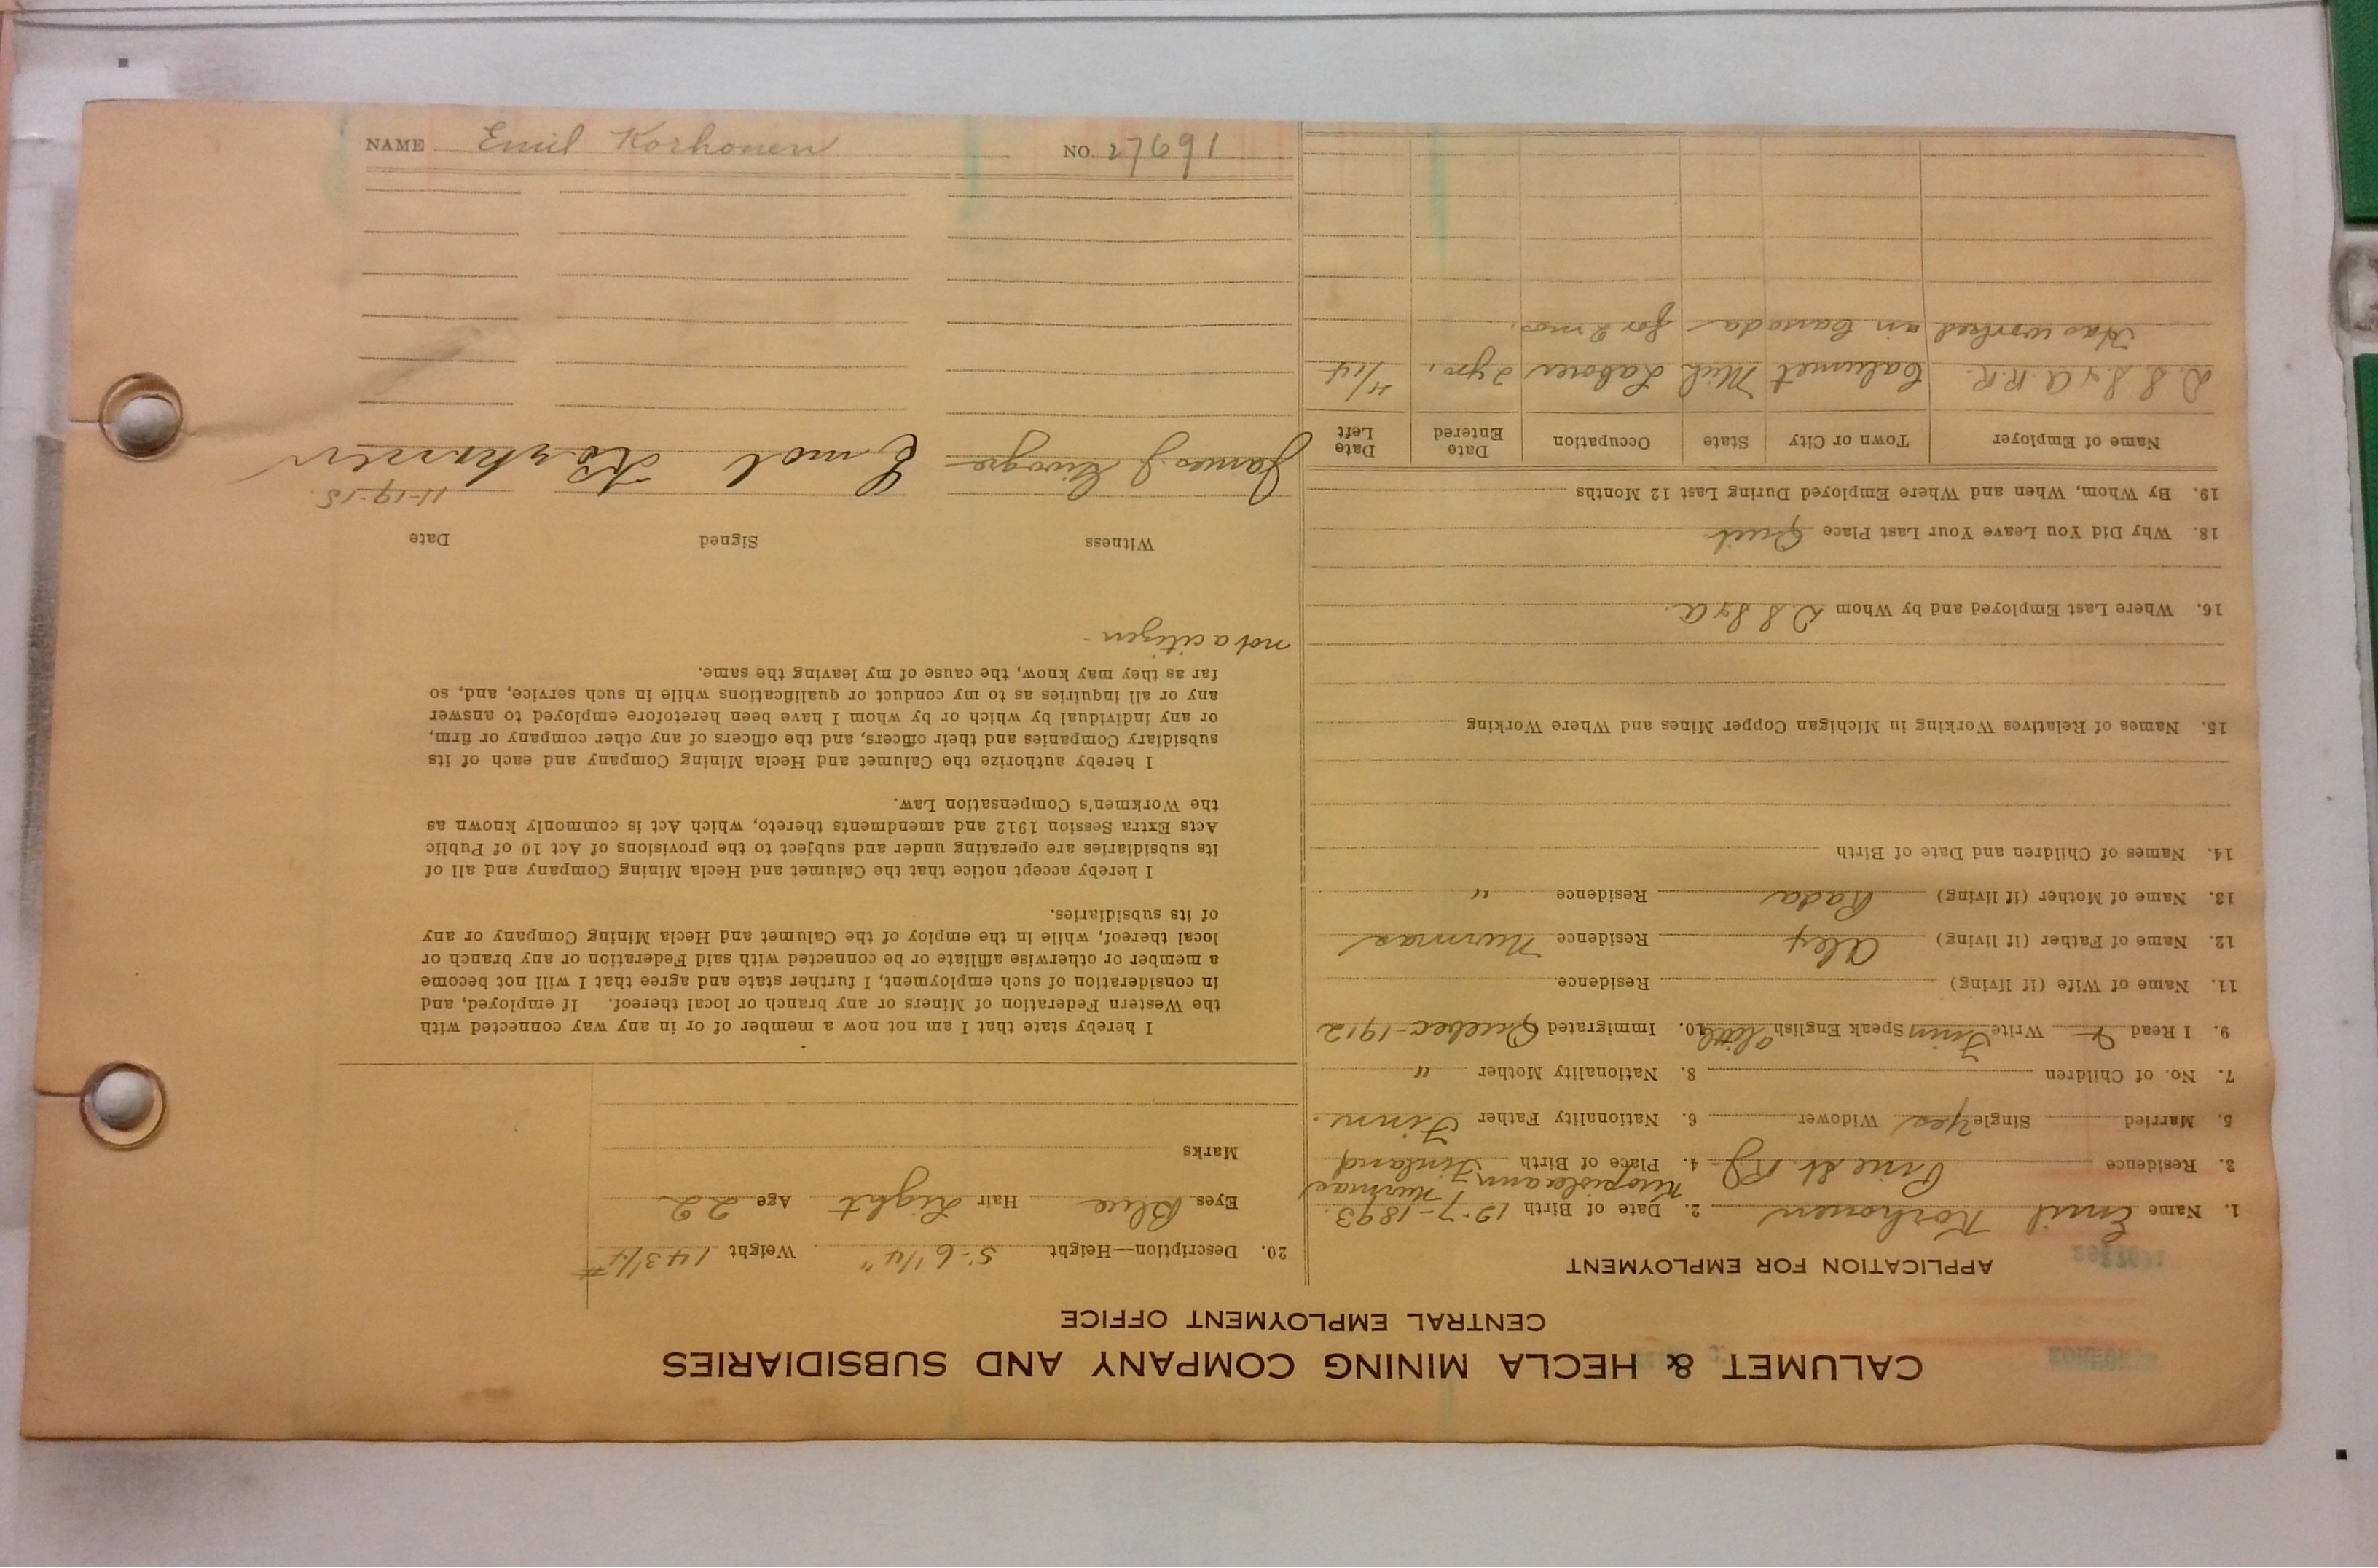 CALUMET & HECLA MINING COMPANY AND SUBSIDIARIES
CENTRAL EMPLOYMENT OFFICE
APPLICATION FOR EMPLOYMENT
1. Name Emil Korhonen 2. Date of Birth 12-7-1893
Kuopiolaani Nurmas
3. Residence Pine St. 4. Place of Birth Finland
5. Married Single Yes Widower 6. Nationality Father Finn.
7. No. of Children 8. Nationality Mother "
9. I Read & Write Finn Speak English little 10. Immigrated Quebec-1912
11. Name of Wife (if living) Residence
12. Name of Father (if living) Alex Residence Nurmas
13. Name of Mother (if living) Kada Residence "
14. Names of Children and Date of Birth
15. Names of Relatives Working in Michigan Copper Mines and Where Working
16. Where Last Employed and by Whom D S S & A.
18. Why Did You Leave Your Last Place Quit
19. By Whom, When and Where Employed During Last 12 Months
Name of Employer Town or City State Occupation Date Entered Date Left
D. S. S. & A. R.R. Calumet Mich Laborer 2 yrs. 4/14
Has worked in Canada for 2 mos.
20. Description—Height 5-6 1/4" Weight 143 1/4 #
Eyes Blue Hair Light Age 22
Marks
I hereby state that I am not now a member of or in any way connected with
the Western Federation of Miners or any branch or local thereof. If employed, and
in consideration of such employment, I further state and agree that I will not become
a member or otherwise affiliate or be connected with said Federation or any branch or
local thereof, while in the employ of the Calumet and Hecla Mining Company or any
of its subsidiaries.
I hereby accept notice that the Calumet and Hecla Mining Company and all of
its subsidiaries are operating under and subject to the provisions of Act 10 of Public
Acts Extra Session 1912 and amendments thereto, which Act is commonly known as
the Workmen's Compensation Law.
I hereby authorize the Calumet and Hecla Mining Company and each of its
subsidiary Companies and their officers, and the officers of any other company or firm,
or any individual by which or by whom I have been heretofore employed to answer
any or all inquiries as to my conduct or qualifications while in such service, and, so
far as they may know, the cause of my leaving the same.
not a citizen.
Witness Signed Date
James J. Emol Korhonen 11-19-15.
NAME Emil Korhonen NO. 27691